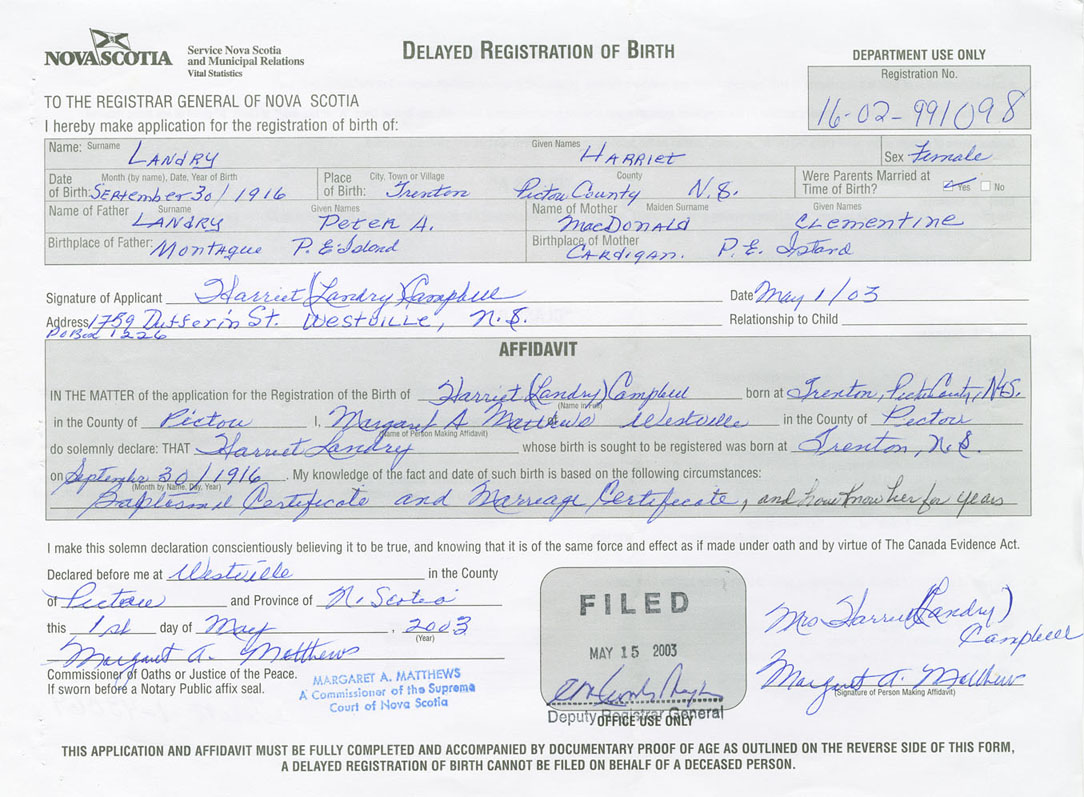 NOVA SCOTIA
Service Nova Scotia
and Municipal Relations
Vital Statistics
DELAYED REGISTRATION OF BIRTH
DEPARTMENT USE ONLY
Registration No.
16-02-991098
TO THE REGISTRAR GENERAL OF NOVA SCOTIA
I hereby make application for the registration of birth of:
Name: Surname LANDRY Given Names HARRIET Sex Female
Date of Birth: Month (by name), Date, Year of Birth September 30/1916 Place of Birth: City, Town or Village Trenton County Pictou County N.S. Were Parents Married at Time of Birth? Yes No
Name of Father Surname LANDRY Given Names Peter A. Name of Mother Maiden Surname MacDonald Given Names Clementine
Birthplace of Father: Montague P.E Island Birthplace of Mother Cardigan. P.E. Island
Signature of Applicant Harriet (Landry) Campbell Date May 1/03
Address 1759 Dufferin St. Westville, N.S. Relationship to Child
PO Box 1226
AFFIDAVIT
IN THE MATTER of the application for the Registration of the Birth of Harriet (Landry) Campbell born at Trenton, Pictou County, N.S.
(Name in Full)
in the County of Pictou I, Margaret A Matthews Westville in the County of Pictou
(Name of Person Making Affidavit)
do solemnly declare: THAT Harriet Landry whose birth is sought to be registered was born at Trenton, N.S.
on September 30/1916. My knowledge of the fact and date of such birth is based on the following circumstances:
(Month by Name, Day, Year)
Baptismal Certificate and Marriage Certificate, and have know her for years
I make this solemn declaration conscientiously believing it to be true, and knowing that it is of the same force and effect as if made under oath and by virtue of The Canada Evidence Act.
Declared before me at Westville in the County
of Pictou and Province of N. Scotia
this 1st day of May, 2003
(Year)
Margaret A. Matthews
Commissioner of Oaths or Justice of the Peace.
If sworn before a Notary Public affix seal.
MARGARET A. MATTHEWS
A Commissioner of the Supreme
Court of Nova Scotia
FILED
MAY 15 2003
Deputy Registrar General
OFFICE USE ONLY
Mrs Harriet (Landry)
Campbell
Margaret A. Matthews
(Signature of Person Making Affidavit)
THIS APPLICATION AND AFFIDAVIT MUST BE FULLY COMPLETED AND ACCOMPANIED BY DOCUMENTARY PROOF OF AGE AS OUTLINED ON THE REVERSE SIDE OF THIS FORM,
A DELAYED REGISTRATION OF BIRTH CANNOT BE FILED ON BEHALF OF A DECEASED PERSON.